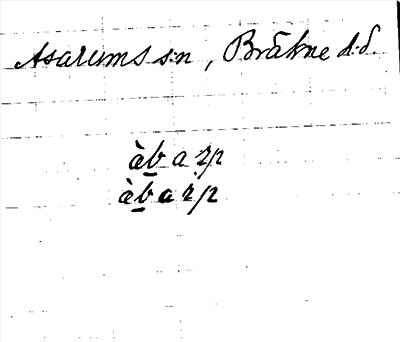 Asarums s:n, Bräkne h:d.
àb̲ a rp
àb̲ a rp